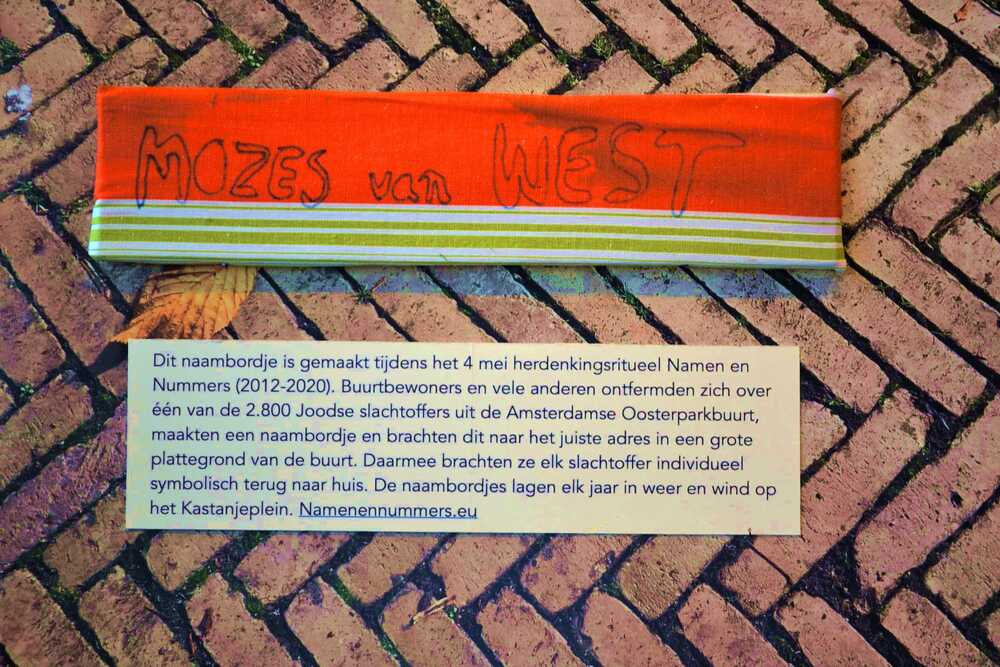 MOZES van WEST
Dit naambordje is gemaakt tijdens het 4 mei herdenkingsritueel Namen en
Nummers (2012-2020). Buurtbewoners en vele anderen ontfermden zich over
één van de 2.800 Joodse slachtoffers uit de Amsterdamse Oosterparkbuurt,
maakten een naambordje en brachten dit naar het juiste adres in een grote
plattegrond van de buurt. Daarmee brachten ze elk slachtoffer individueel
symbolisch terug naar huis. De naambordjes lagen elk jaar in weer en wind op
het Kastanjeplein. Namenennummers.eu